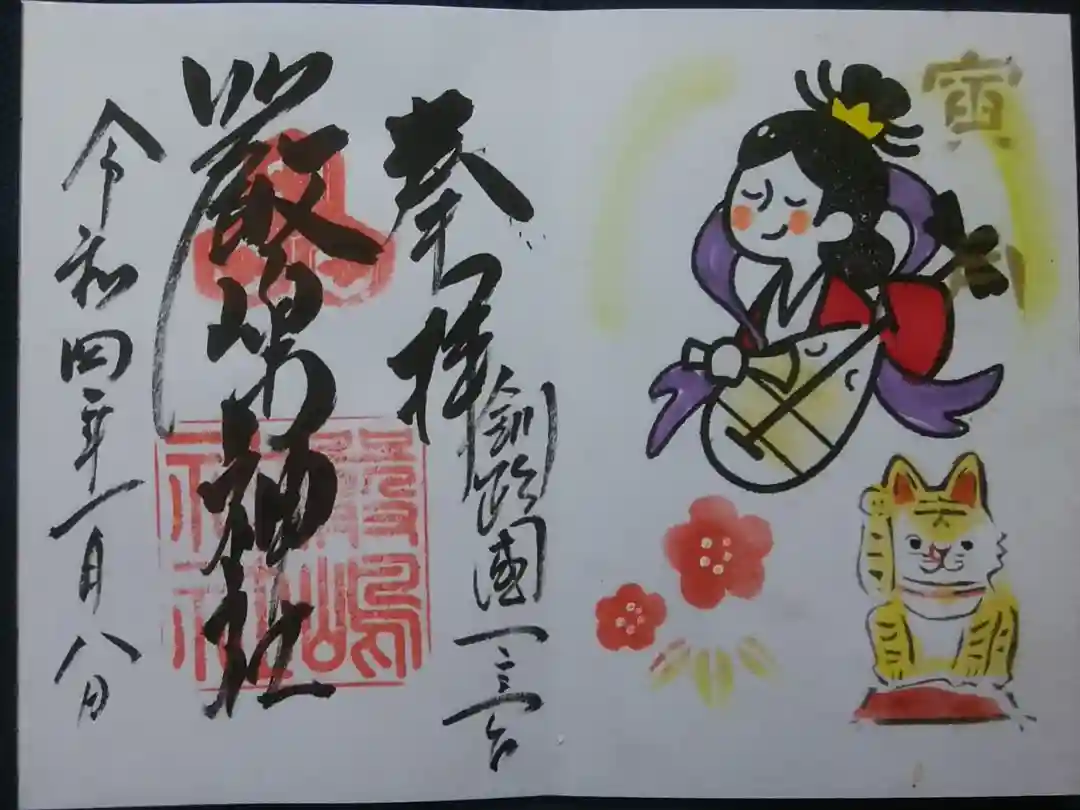 寅
奉拝
釧路國一之宮
厳嶋神社
嚴嶋
神社
令和四年一月八日